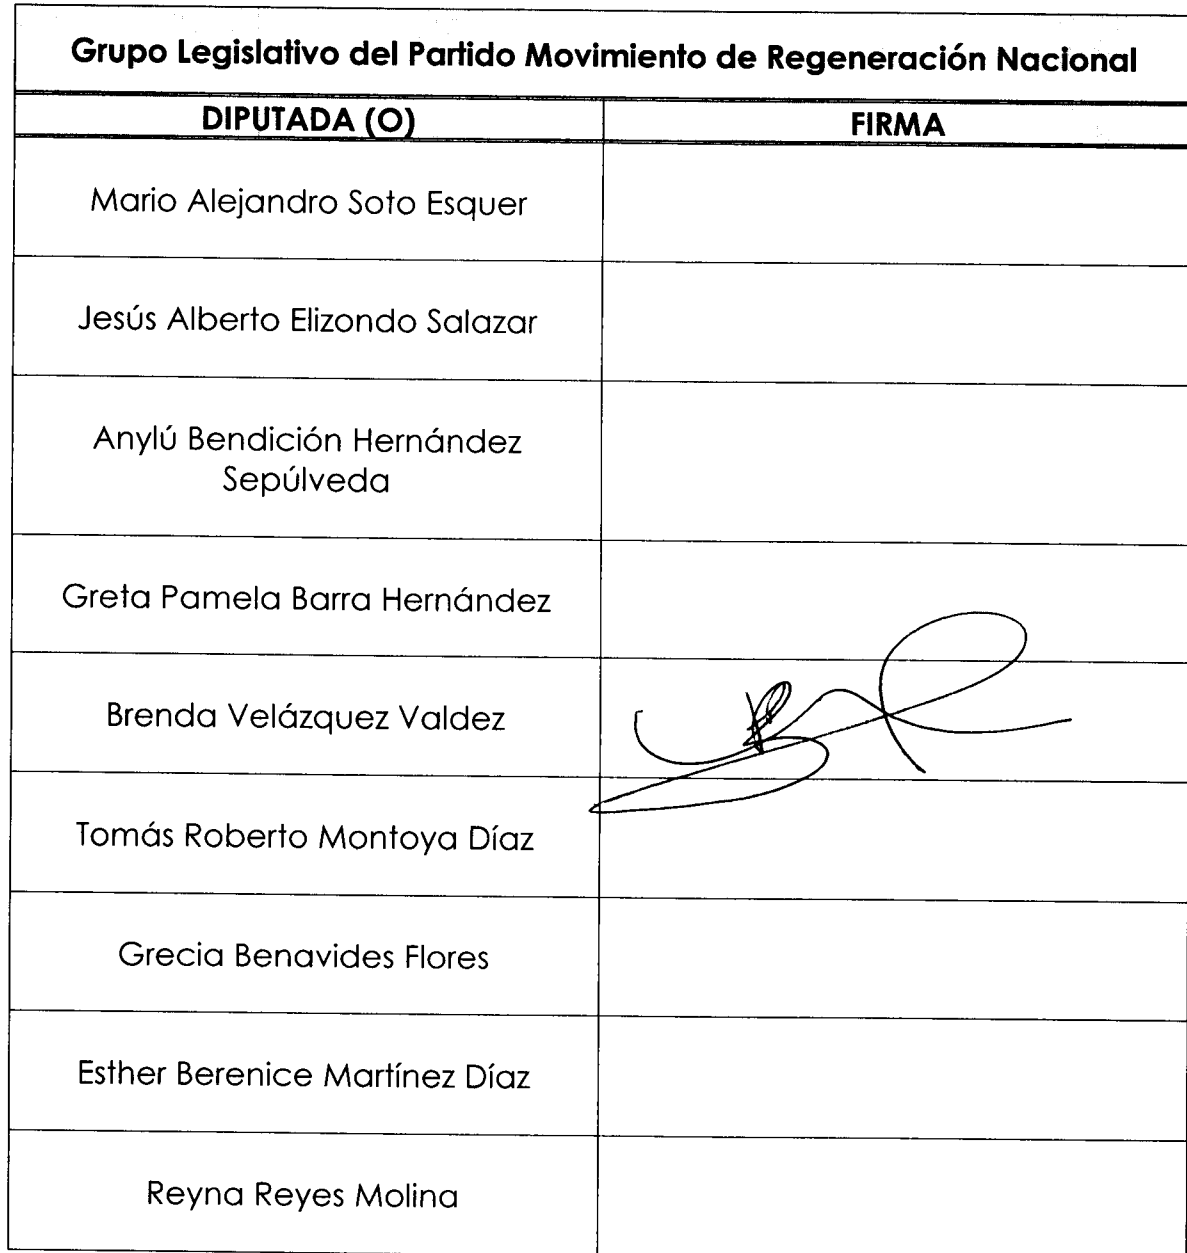 Grupo Legislativo del Partido Movimiento de Regeneración Nacional
DIPUTADA (O)
FIRMA
Mario Alejandro Soto Esquer
Jesús Alberto Elizondo Salazar
Anylú Bendición Hernández
Sepúlveda
Greta Pamela Barra Hernández
Brenda Velázquez Valdez
Tomás Roberto Montoya Díaz
Grecia Benavides Flores
Esther Berenice Martínez Díaz
Reyna Reyes Molina